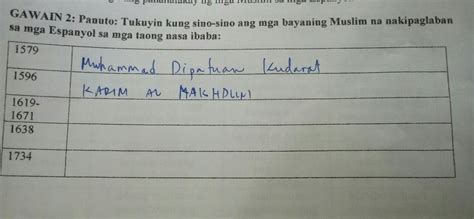 GAWAIN 2: Panuto: Tukuyin kung sino-sino ang mga bayaning Muslim na nakipaglaban
sa mga Espanyol sa mga taong nasa ibaba:
1579
Muhammad Dipatuan Kudarat
1596
KARIM AL MAKHDUNI
1619-
1671
1638
1734